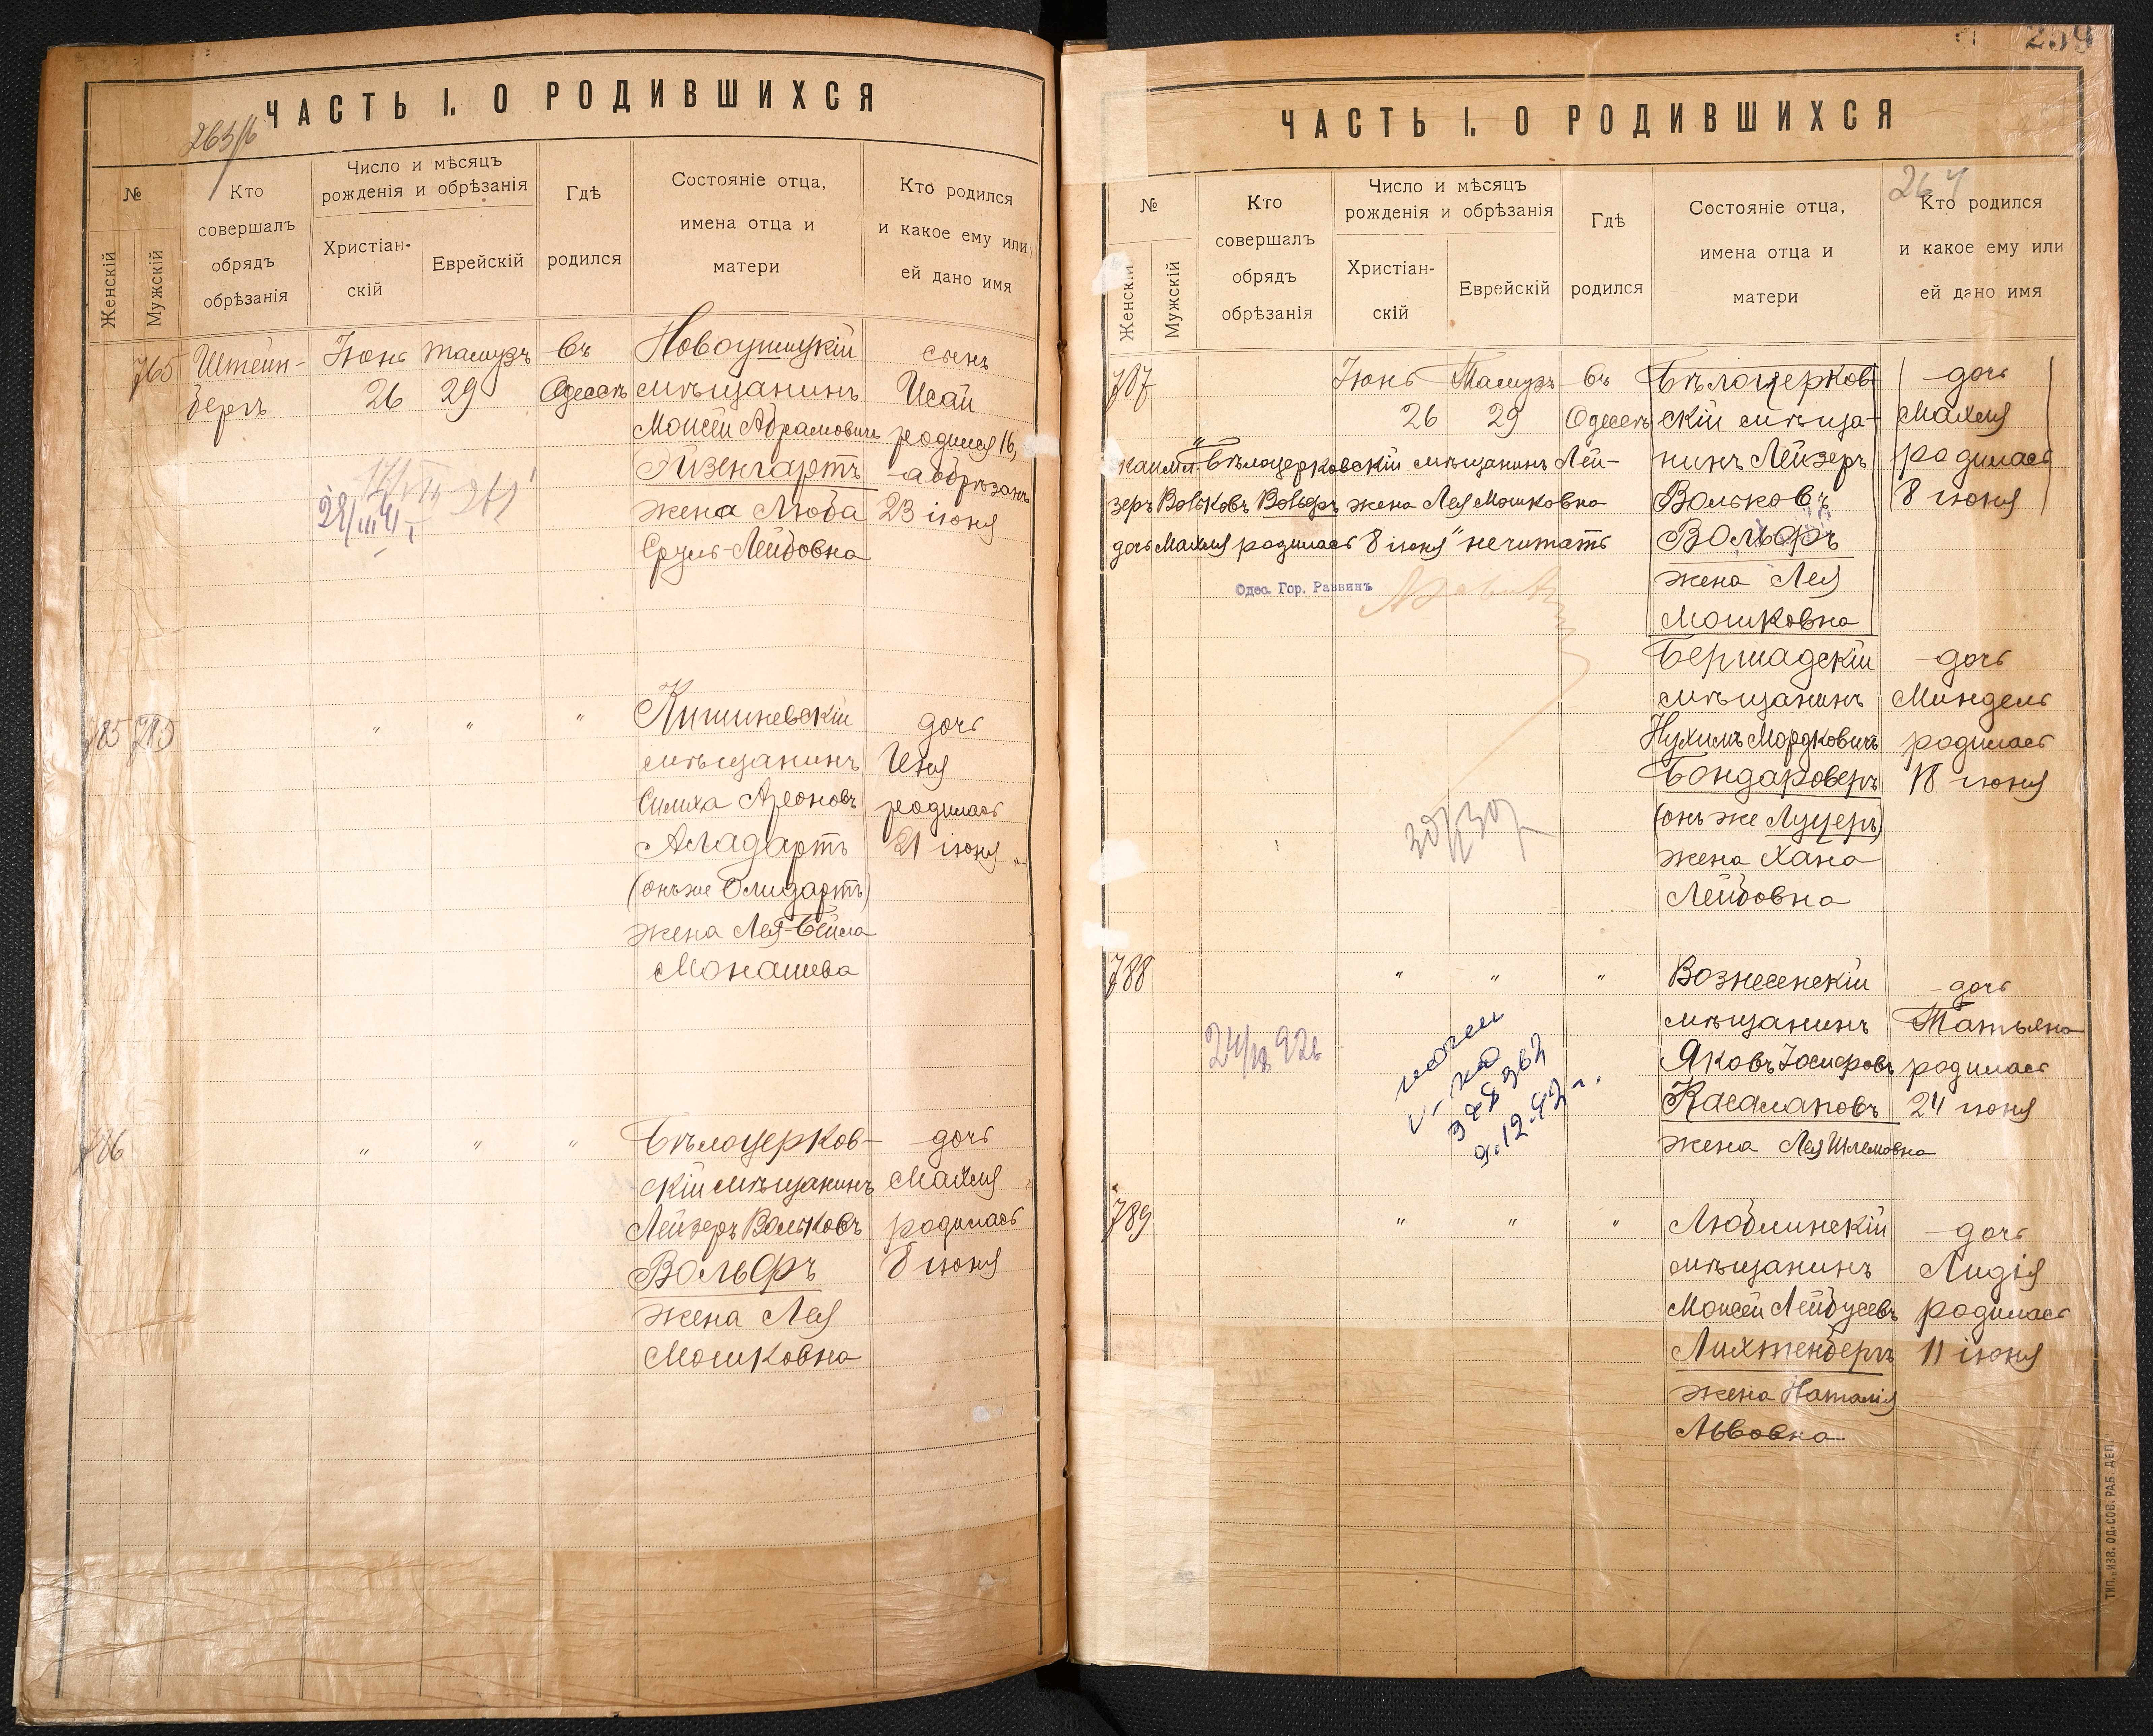 ЧАСТЬ I. О РОДИВШИХСЯ
263/б
№
Женскій
Мужскій
Кто
совершалъ
обрядъ
обрѣзанія
Число и мѣсяцъ
рожденія и обрѣзанія
Христіан-
скій
Еврейскій
Гдѣ
родился
Состояніе отца,
имена отца и
матери
Кто родился
и какое ему или
ей дано имя
765
Штейн-
бергъ
Іюнь
26
Тамузъ
29
въ
Одессѣ
Новоушицкій
мѣщанинъ
Моисей Абрамовичъ
Эйзенгартъ
жена Люба
Сруль-Лейбовна
сынъ
Исай
родился 16,
а обрѣзанъ
23 іюня
785
" " "
Кишиневскій
мѣщанинъ
Симха Ароновъ
Аладартъ
(онъ же Олидартъ)
жена Лея-Бейла
Монашева
дочь
Иня
родилась
21 іюня
786
" " "
Бѣлоцерков-
скій мѣщанинъ
Лейзеръ Вольковъ
Вольфъ
жена Лея
Мошковна
дочь
Махля
родилась
8 іюня
ЧАСТЬ I. О РОДИВШИХСЯ
264
№
Женскій
Мужскій
Кто
совершалъ
обрядъ
обрѣзанія
Число и мѣсяцъ
рожденія и обрѣзанія
Христіан-
скій
Еврейскій
Гдѣ
родился
Состояніе отца,
имена отца и
матери
Кто родился
и какое ему или
ей дано имя
787
Іюнь
26
Тамузъ
29
въ
Одессѣ
Бѣлоцерков-
скій мѣща-
нинъ Лейзеръ
Вольковъ
Вольфъ
жена Лея
Мошковна
дочь
Махля
родилась
8 іюня
"Бѣлоцерковскій мѣщанинъ Лей-
зеръ Вольковъ Вольфъ жена Лея Мошковна
дочь Махля родилась 8 іюня" не читать
Одес. Гор. Раввинъ
Бершадскій
мѣщанинъ
Нухимъ Мордковичъ
Бондароверъ
(онъ же Луцеръ)
жена Хана
Лейбовна
дочь
Миндель
родилась
18 іюня
788
" " "
Вознесенскій
мѣщанинъ
Яковъ Іосифовъ
Касалаповъ
жена Лея Шлемовна
дочь
Татьяна
родилась
24 іюня
9.12.42 г.
789
" " "
Люблинскій
мѣщанинъ
Моисей Лейбусевъ
Лихтенбергъ
жена Наталія
Львовна
дочь
Лидія
родилась
11 іюня
ТИП. „ИЗВ. ОД. СОВ. РАБ. ДЕП."